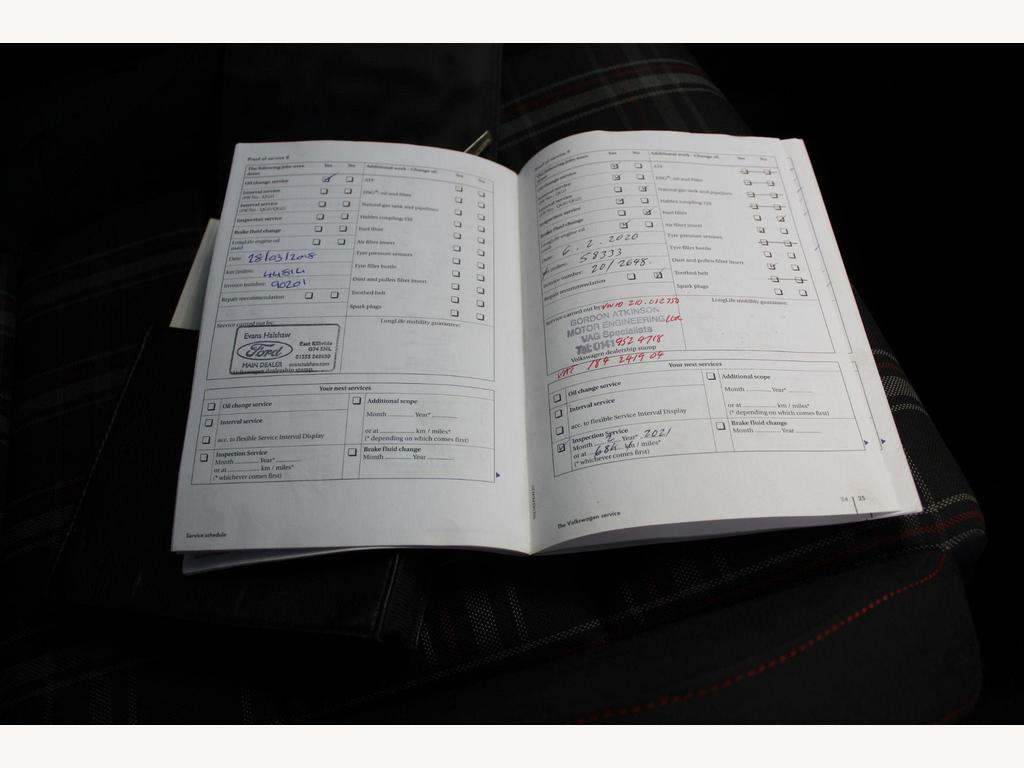 Proof of service 8
The following jobs were done:
Yes No
Additional work - Change of:
Yes No
Oil change service
ATF
Interval service
DSG®: oil and filter
Interval service
Natural gas tank and pipelines
Inspection service
Haldex coupling: Oil
Brake fluid change
Fuel filter
LongLife engine oil used
Air filter insert
Date: 28/03/2018
Tyre pressure sensors
km/miles:
Tyre filler bottle
Invoice number: 90201
Dust and pollen filter insert
Repair recommendation
Toothed belt
Spark plugs
Service carried out by:
LongLife mobility guarantee:
Evans Halshaw
Ford
East Kilbride
G74 5NL
MAIN DEALER
evanshalshaw.com
Volkswagen dealership stamp
Your next services
Oil change service
Interval service
acc. to flexible Service Interval Display
Inspection Service
Month Year*
or at km / miles*
(* whichever comes first)
Additional scope
Month Year*
or at km / miles*
(* depending on which comes first)
Brake fluid change
Month Year
Service schedule
Proof of service 9
The following jobs were done:
Yes No
Additional work - Change of:
Yes No
Oil change service
ATF
Interval service
DSG®: oil and filter
Interval service
Natural gas tank and pipelines
Inspection service
Haldex coupling: Oil
Brake fluid change
Fuel filter
LongLife engine oil
Air filter insert
Date: 6.2.2020
Tyre pressure sensors
58333
Tyre filler bottle
20/2648.
Dust and pollen filter insert
Repair recommendation
Toothed belt
Spark plugs
Service carried out by
LongLife mobility guarantee:
GORDON ATKINSON
MOTOR ENGINEERING Ltd
VAG Specialists
Tel: 0141 952 4718
Volkswagen dealership stamp
VAT 184 2419 04
Your next services
Oil change service
Interval service
acc. to flexible Service Interval Display
Inspection Service
Month 2 Year* 2021
or at 68k km / miles*
(* whichever comes first)
Additional scope
Month Year*
or at km / miles*
(* depending on which comes first)
Brake fluid change
Month Year
The Volkswagen service
24 25